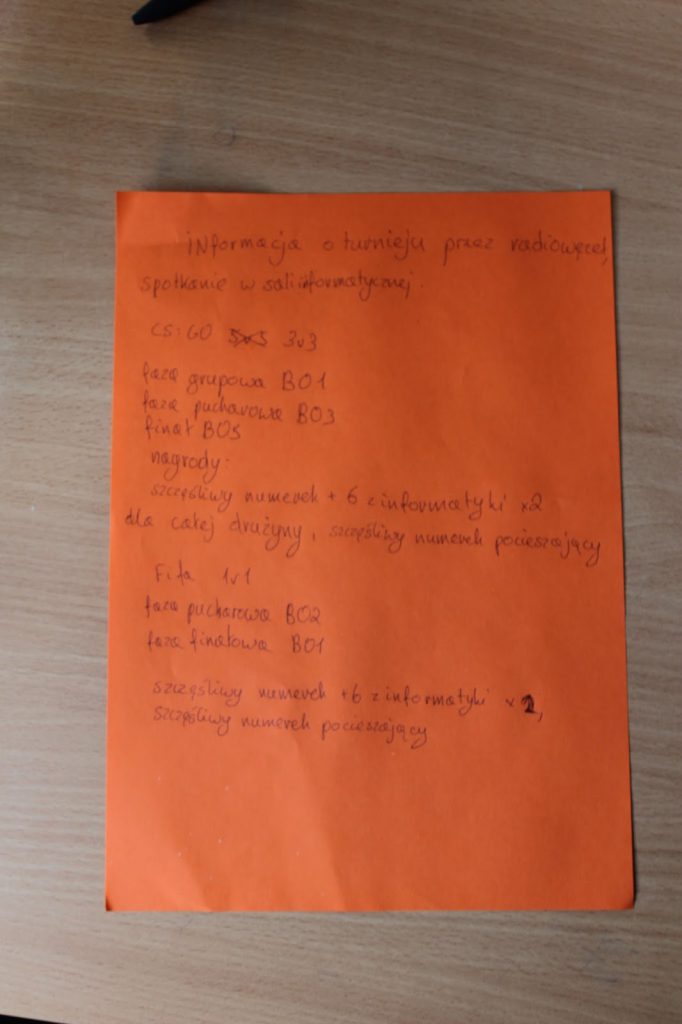 informacja o turnieju przez radiowęzeł,
spotkanie w sali informatycznej.
CS:GO 5v5 3v3
faza grupowa BO1
faza pucharowa BO3
finał BO5
nagrody:
szczęśliwy numerek + 6 z informatyki x2
dla całej drużyny, szczęśliwy numerek pocieszający
Fifa 1v1
faza pucharowa BO2
faza finałowa BO1
szczęśliwy numerek +6 z informatyki x 2,
szczęśliwy numerek pocieszający